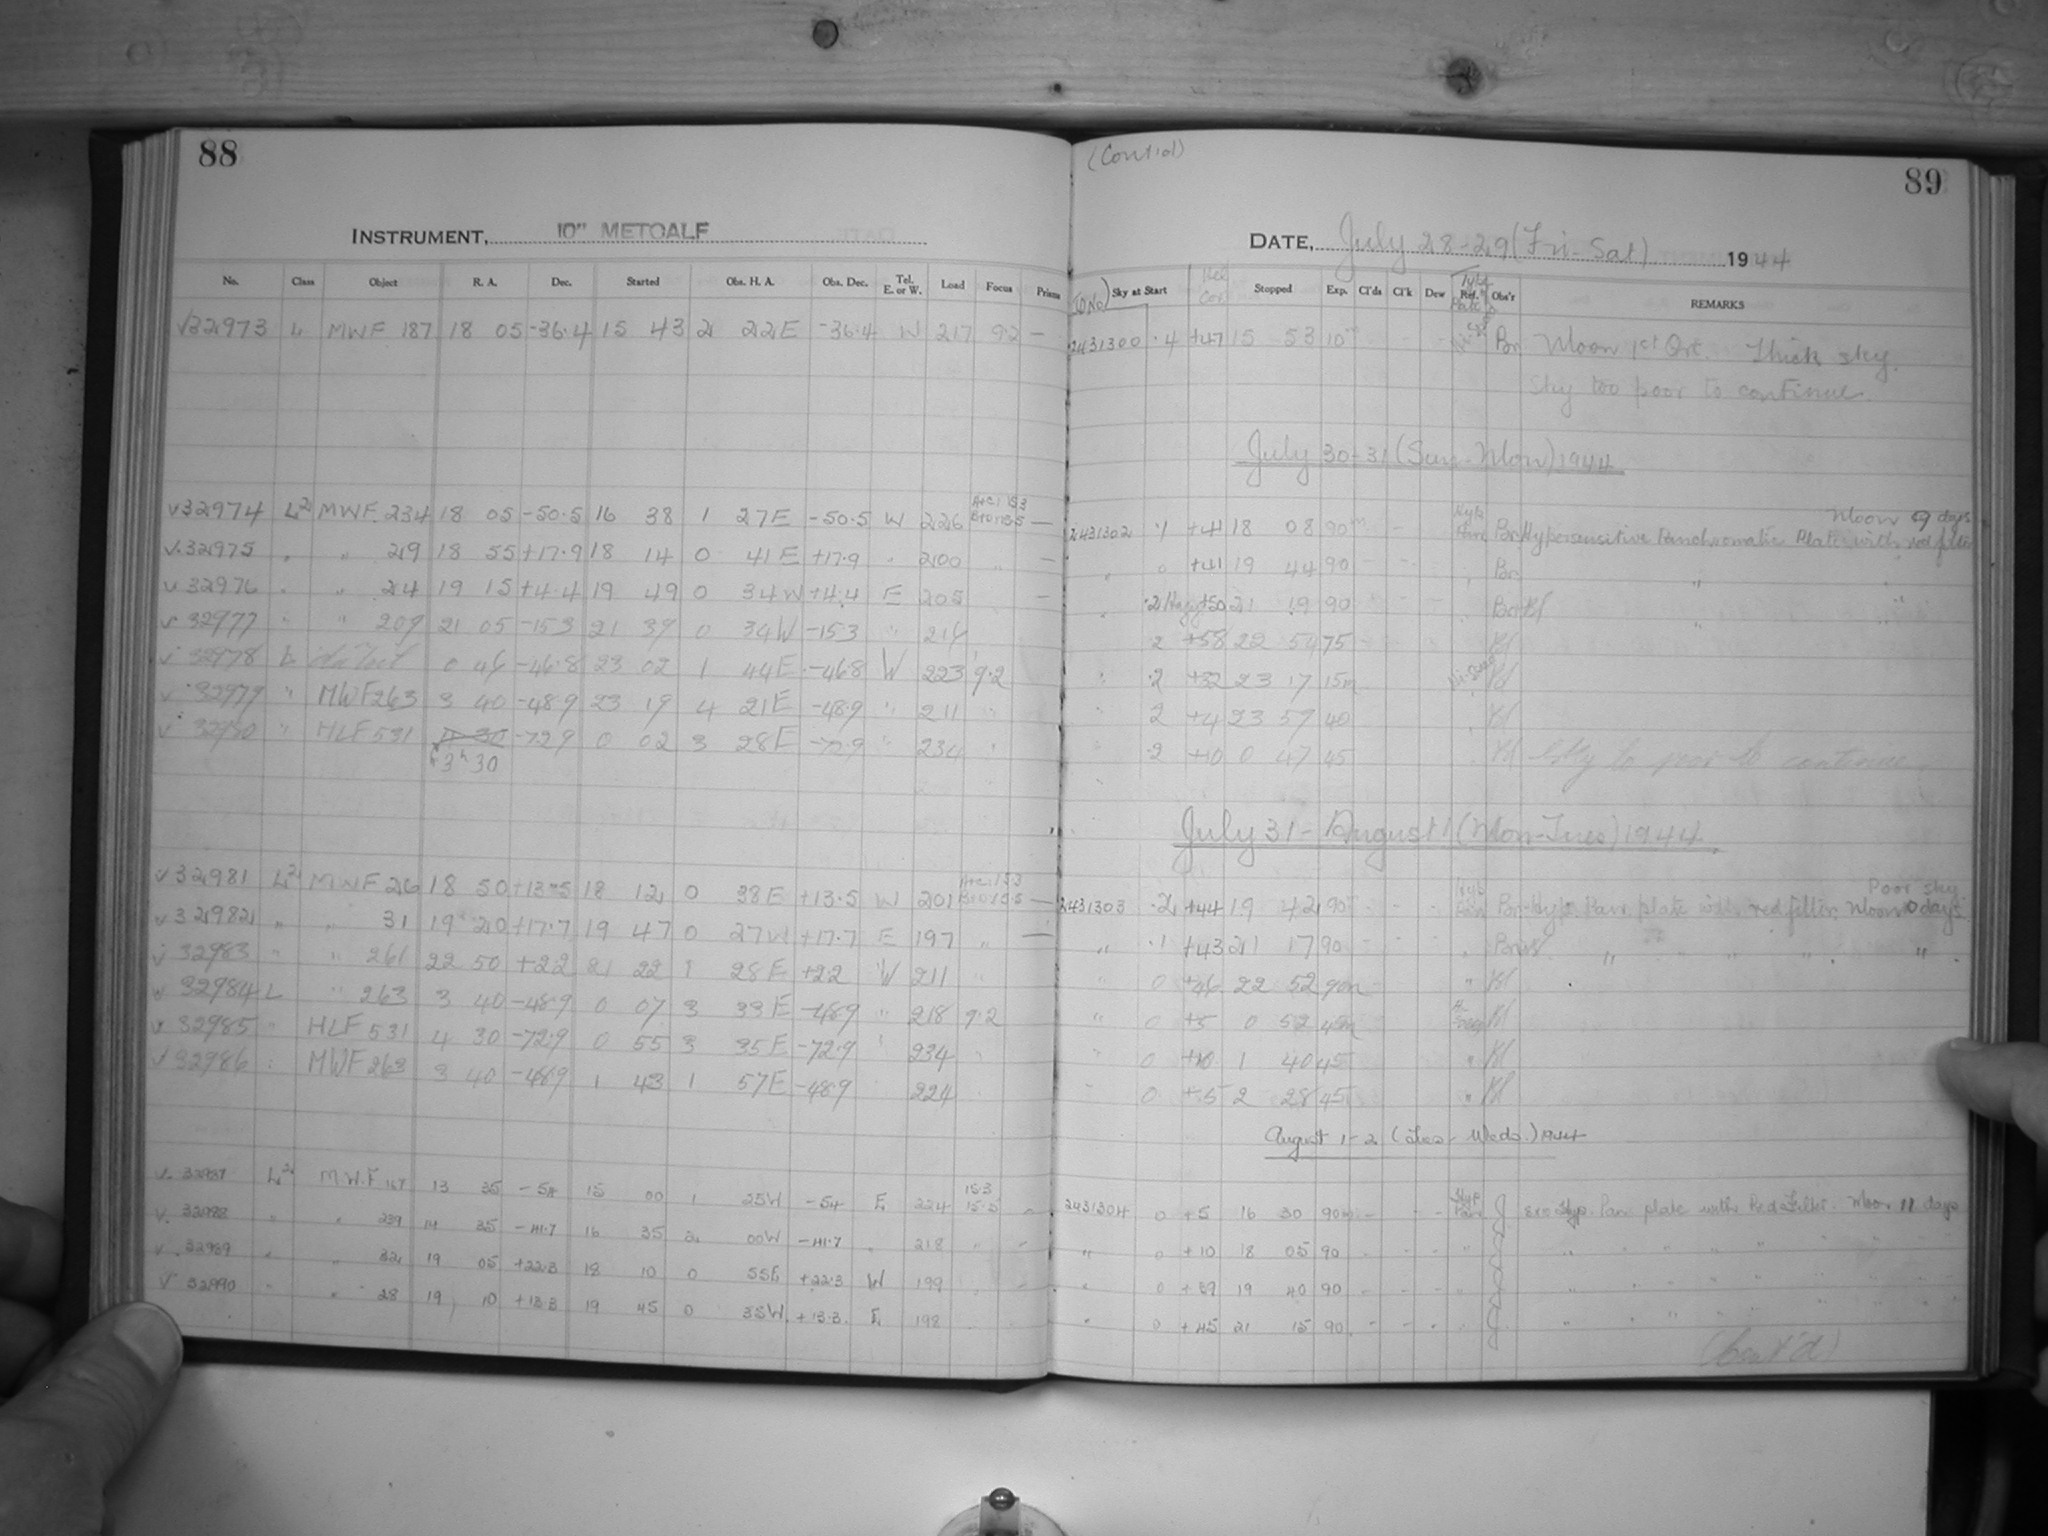 88
INSTRUMENT, 10" METCALF
No. Class Object R. A. Dec. Started Obs. H. A. Obs. Dec. Tel. E. or W. Load Focus Prism
√32973 L MWF 187 18 05 -36.4 15 43 2 22E -36.4 W 217 9.2 —
√32974 L2 MWF 234 18 05 -50.5 16 38 1 27E -50.5 W 226 A+C 15.3 B+D 15.5 —
√32975 " " 29 18 55 +17.9 18 14 0 41E +17.9 " 200 " —
√32976 " " 24 19 15 +4.4 19 49 0 34W +4.4 E 205 —
√32977 " " 209 21 05 -15.3 21 39 0 34W -15.3 "
√32978 L 0 46 -46.8 23 02 1 44E -46.8 W 223 9.2
√32979 " MWF 263 3 40 -48.9 23 19 4 21E -48.9 " 211 "
√32980 " HLF 531 -72.9 0 02 3 28E -72.9 " 234 "
3h 30
√32981 L2 MWF 26 18 50 +13.5 18 12 0 38E +13.5 W 201 A+C 15.3 B+D 15.5 —
√32982 " " 31 19 20 +17.7 19 47 0 27W +17.7 E 197 " —
√32983 " " 261 22 50 +2.2 21 22 1 28E +2.2 W 211 "
√32984 L " 263 3 40 -48.9 0 07 3 33E -48.9 " 218 9.2
√32985 " HLF 531 4 30 -72.9 0 55 3 35E -72.9 " 234 "
√32986 " MWF 263 3 40 -48.9 1 43 1 57E -48.9 224
√32987 L2 M.W.F 167 13 35 -54 15 00 1 25W -54 E 224 15.3 15.5
√32988 " " 239 14 35 -41.7 16 35 2 00W -41.7 " 218 "
√32989 " " 32 19 05 +22.3 18 10 0 55E +22.3 W 199
√32990 " " 28 19 10 +13.3 19 45 0 35W +13.3 E 198
(Cont'd)
89
DATE, July 28-29 (Fri-Sat) 1944
J.D. No. Sky at Start Hel Cor Stopped Exp. Cl'ds Cl'k Dew Type Plate Ref. Obs'r REMARKS
2431300 .4 +47 15 53 10m Br Moon 1st Qrt. Thick sky.
Sky too poor to continue.
July 30-31 (Sun-Mon) 1944
Moon 9 days
2431302 .1 +41 18 08 90m Hyp. Pan Br Hypersensitive Panchromatic Plate with red filter
" 0 +41 19 44 90 " Br "
" .2 Hazy +50 21 19 90 " "
2 +58 22 54 75
" .2 +32 23 17 15m
" 2 +4 23 59 40
.2 +10 0 47 45 Sky to poor to continue.
July 31 - August 1 (Mon-Tues) 1944
Poor sky
2431303 .2 +44 19 42 90m Hyp Pan Br Hyp. Pan plate with red filter. Moon 10 days
" .1 +43 21 17 90 " " " " "
" 0 +46 22 52 90m "
" 0 +5 0 52 45m
" 0 +10 1 40 45 "
" 0 +5 2 28 45 "
August 1-2 (Tues-Weds.) 1944
2431304 0 +5 16 30 90m - - - Hyp Pan J Hyp. Pan plate with Red Filter. Moon 11 days
" 0 +10 18 05 90 - - - " J " " " "
" 0 +39 19 40 90 - - - " J " " " "
" 0 +45 21 15 90 - - - " J " " " "
(Cont'd)